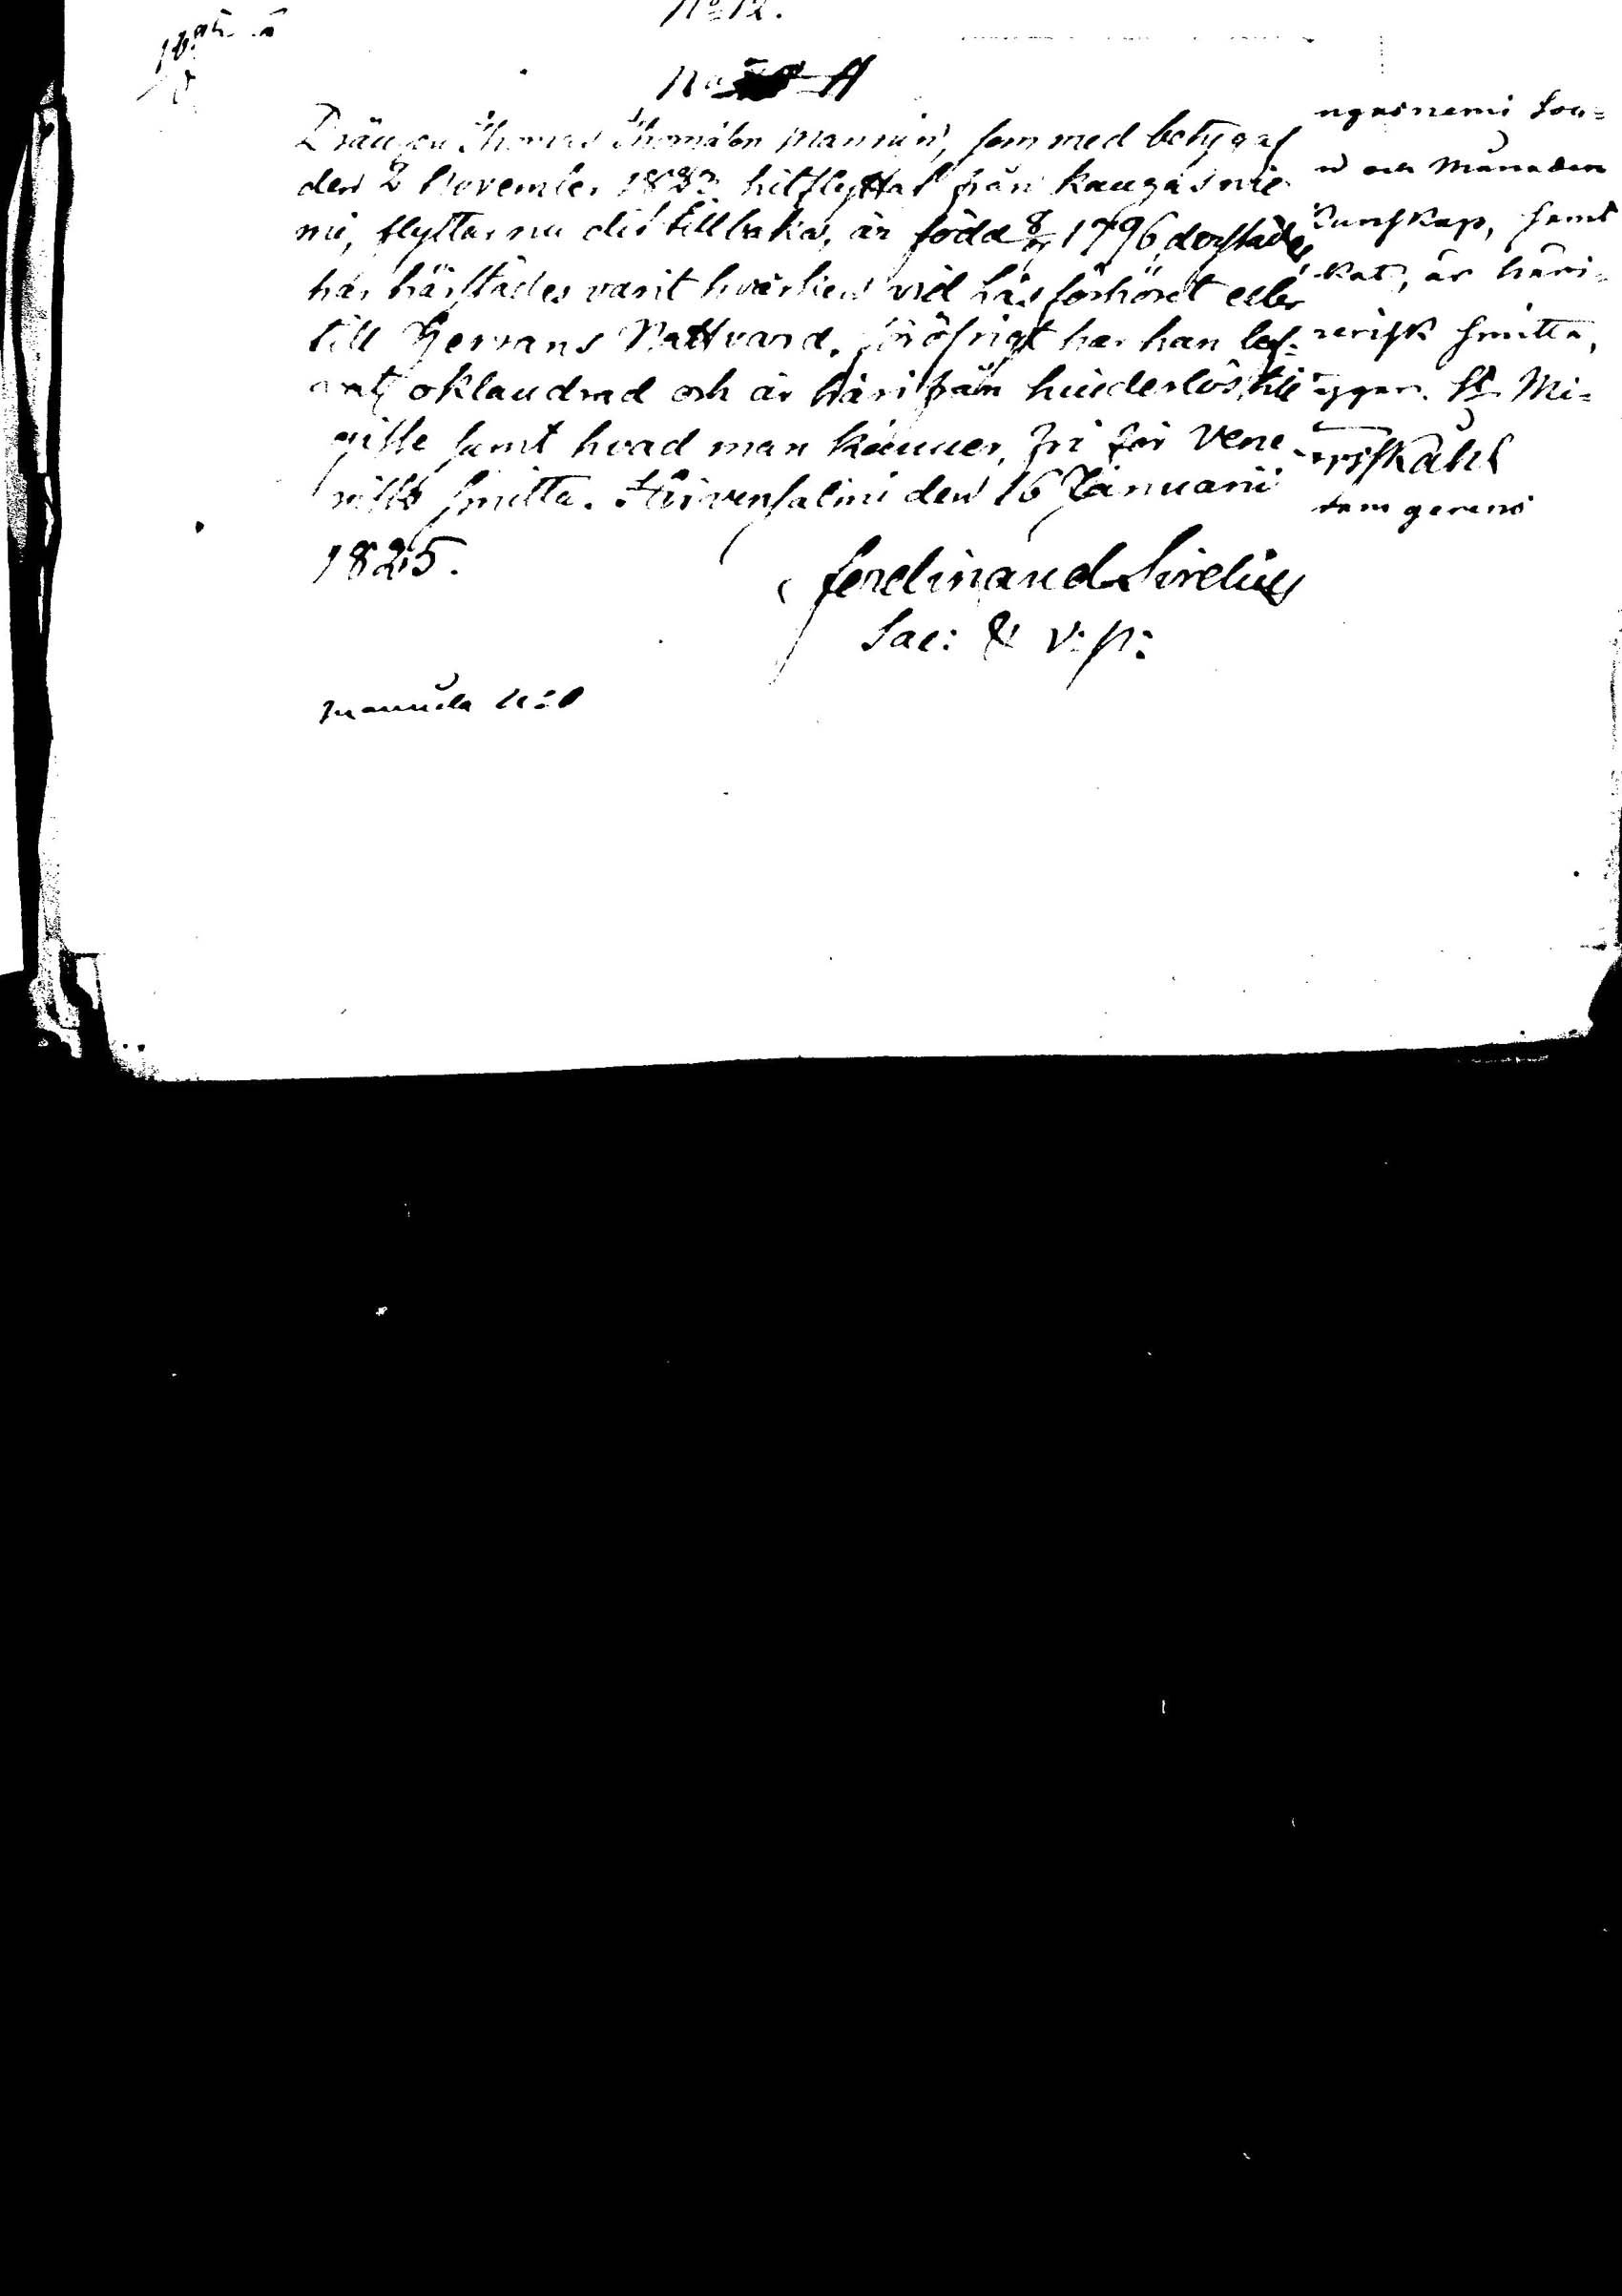 No 12.
Drängen Thomas Thomasson Manninen, som med betyg af
den 2 November 1823 hitflyttat från Kangasnie
mi, flyttar nu dit tillbaka, är född 1796 derstädes
har härstädes varit hvarken vid Läsförhöret eller
till Herrans Nattvard. för öfrigt har han lef-
vat oklandrad och är härifrån hinderlös till
gifte samt hvad man känner, fri för Vene
risk smitta. Hirvensalmi den 16 Januarii
1825.
Ferdinand Sirelius
Sac: & v: p:
ngasnemi Soc=
n och Månaden
kunskap, samt
kat, är häri-
nerisk smitta,
ygar. St. Mi=